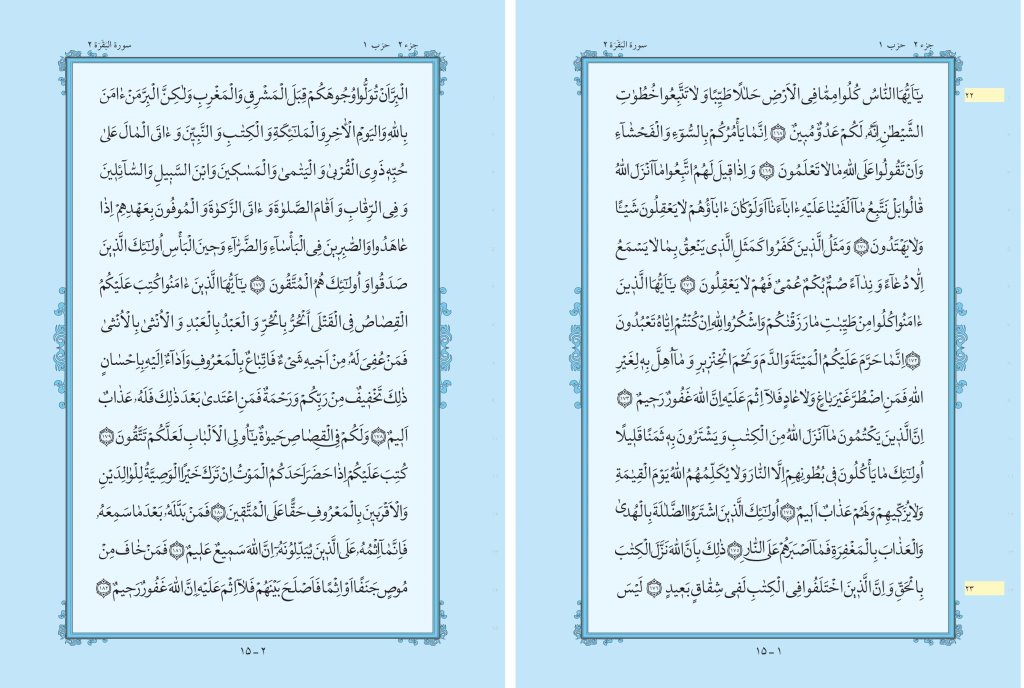 جزء ٢ حزب ١
سورة البَقَرَة ٢
٢٢
يٰٓاَيُّهَا النّاسُ كُلُوا مِمّا فِى الْاَرْضِ حَلٰلًا طَيِّبًا وَ لا تَتَّبِعُوا خُطُوٰتِ
الشَّيْطٰنِ اِنَّهُ, لَكُمْ عَدُوٌّ مُبينٌ ١٦٨ اِنَّما يَأْمُرُكُمْ بِالسّوٓءِ وَالْفَحْشآءِ
وَاَنْ تَقُولُوا عَلَى اللهِ ما لا تَعْلَمُونَ ١٦٩ وَ اِذا قيلَ لَهُمُ اتَّبِعوا مآ اَنْزَلَ اللهُ
قالُوا بَلْ نَتَّبِعُ مآ اَلْفَيْنا عَلَيْهِ ءابآءَنآ اَوَلَوْ كانَ ءابآؤُهُمْ لا يَعْقِلُونَ شَيْئًا
وَلا يَهْتَدُونَ ١٧٠ وَمَثَلُ الَّذينَ كَفَرُوا كَمَثَلِ الَّذى يَنْعِقُ بِما لا يَسْمَعُ
اِلّا دُعآءً وَ نِدآءً صُمٌّ بُكْمٌ عُمْىٌ فَهُمْ لا يَعْقِلُونَ ١٧١ يٰٓاَيُّهَا الَّذينَ
ءامَنُوا كُلُوا مِنْ طَيِّبٰتِ ما رَزَقْنٰكُمْ وَاشْكُرُوا لِلّٰهِ اِنْ كُنْتُمْ اِيّاهُ تَعْبُدُونَ
١٧٢ اِنَّما حَرَّمَ عَلَيْكُمُ الْمَيْتَةَ وَالدَّمَ وَ لَحْمَ الْخِنْزيرِ وَ مآ اُهِلَّ بِهِ لِغَيْرِ
اللهِ فَمَنِ اضْطُرَّ غَيْرَ باغٍ وَ لا عادٍ فَلآ اِثْمَ عَلَيْهِ اِنَّ اللهَ غَفُورٌ رَحيمٌ ١٧٣
اِنَّ الَّذينَ يَكْتُمُونَ مآ اَنْزَلَ اللهُ مِنَ الْكِتٰبِ وَ يَشْتَرُونَ بِهِ ثَمَنًا قَليلًا
اُولٰٓئِكَ ما يَأْكُلُونَ فى بُطُونِهِمْ اِلَّا النّارَ وَ لا يُكَلِّمُهُمُ اللهُ يَوْمَ الْقِيٰمَةِ
وَلا يُزَكّيهِمْ وَلَهُمْ عَذابٌ اَليمٌ ١٧٤ اُولٰٓئِكَ الَّذينَ اشْتَرَوُا الضَّلٰلَةَ بِالْهُدىٰ
وَالْعَذابَ بِالْمَغْفِرَةِ فَمآ اَصْبَرَهُمْ عَلَى النّارِ ١٧٥ ذٰلِكَ بِاَنَّ اللهَ نَزَّلَ الْكِتٰبَ
بِالْحَقِّ وَ اِنَّ الَّذينَ اخْتَلَفُوا فِى الْكِتٰبِ لَفى شِقاقٍ بَعيدٍ ١٧٦ لَيْسَ
٢٣
١ - ١٥
جزء ٢ حزب ١
سورة البَقَرَة ٢
الْبِرَّ اَنْ تُوَلُّوا وُجُوهَكُمْ قِبَلَ الْمَشْرِقِ وَالْمَغْرِبِ وَلٰكِنَّ الْبِرَّ مَنْ ءامَنَ
بِاللهِ وَالْيَوْمِ الْاٰخِرِ وَالْمَلٰٓئِكَةِ وَ الْكِتٰبِ وَ النَّبِيّينَ وَ ءاتَى الْمالَ عَلىٰ
حُبِّهِ ذَوِى الْقُرْبىٰ وَ الْيَتٰمىٰ وَالْمَسٰكينَ وَابْنَ السَّبيلِ وَالسّآئِلينَ
وَ فِى الرِّقابِ وَ اَقامَ الصَّلوٰةَ وَ ءاتَى الزَّكوٰةَ وَ الْموفُونَ بِعَهْدِهِمْ اِذا
عاهَدُوا وَالصّٰبِرينَ فِى الْبَأْسآءِ وَالضَّرّآءِ وَحينَ الْبَأْسِ اُولٰٓئِكَ الَّذينَ
صَدَقُوا وَ اُولٰٓئِكَ هُمُ الْمُتَّقُونَ ١٧٧ يٰٓاَيُّهَا الَّذينَ ءامَنُوا كُتِبَ عَلَيْكُمُ
الْقِصاصُ فِى الْقَتْلَى الْحُرُّ بِالْحُرِّ وَ الْعَبْدُ بِالْعَبْدِ وَ الْاُنْثىٰ بِالْاُنْثىٰ
فَمَنْ عُفِىَ لَهُ, مِنْ اَخيهِ شَىْءٌ فَاتِّباعٌ بِالْمَعْرُوفِ وَ اَدآءٌ اِلَيْهِ بِاِحْسانٍ
ذٰلِكَ تَخْفيفٌ مِنْ رَبِّكُمْ وَرَحْمَةٌ فَمَنِ اعْتَدىٰ بَعْدَ ذٰلِكَ فَلَهُ, عَذابٌ
اَليمٌ ١٧٨ وَ لَكُمْ فِى الْقِصاصِ حَيوٰةٌ يٰٓاُولِى الْاَلْبٰبِ لَعَلَّكُمْ تَتَّقُونَ ١٧٩
كُتِبَ عَلَيْكُمْ اِذا حَضَرَ اَحَدَكُمُ الْمَوْتُ اِنْ تَرَكَ خَيْرًا الْوَصِيَّةُ لِلْوٰلِدَيْنِ
وَالْاَقْرَبينَ بِالْمَعْرُوفِ حَقًّا عَلَى الْمُتَّقينَ ١٨٠ فَمَنْ بَدَّلَهُ, بَعْدَ ما سَمِعَهُ,
فَاِنَّمآ اِثْمُهُ, عَلَى الَّذينَ يُبَدِّلُونَهُ,ٓ اِنَّ اللهَ سَميعٌ عَليمٌ ١٨١ فَمَنْ خافَ مِنْ
مُوصٍ جَنَفًا اَوْ اِثْمًا فَاَصْلَحَ بَيْنَهُمْ فَلآ اِثْمَ عَلَيْهِ اِنَّ اللهَ غَفُورٌ رَحيمٌ ١٨٢
٢ - ١٥